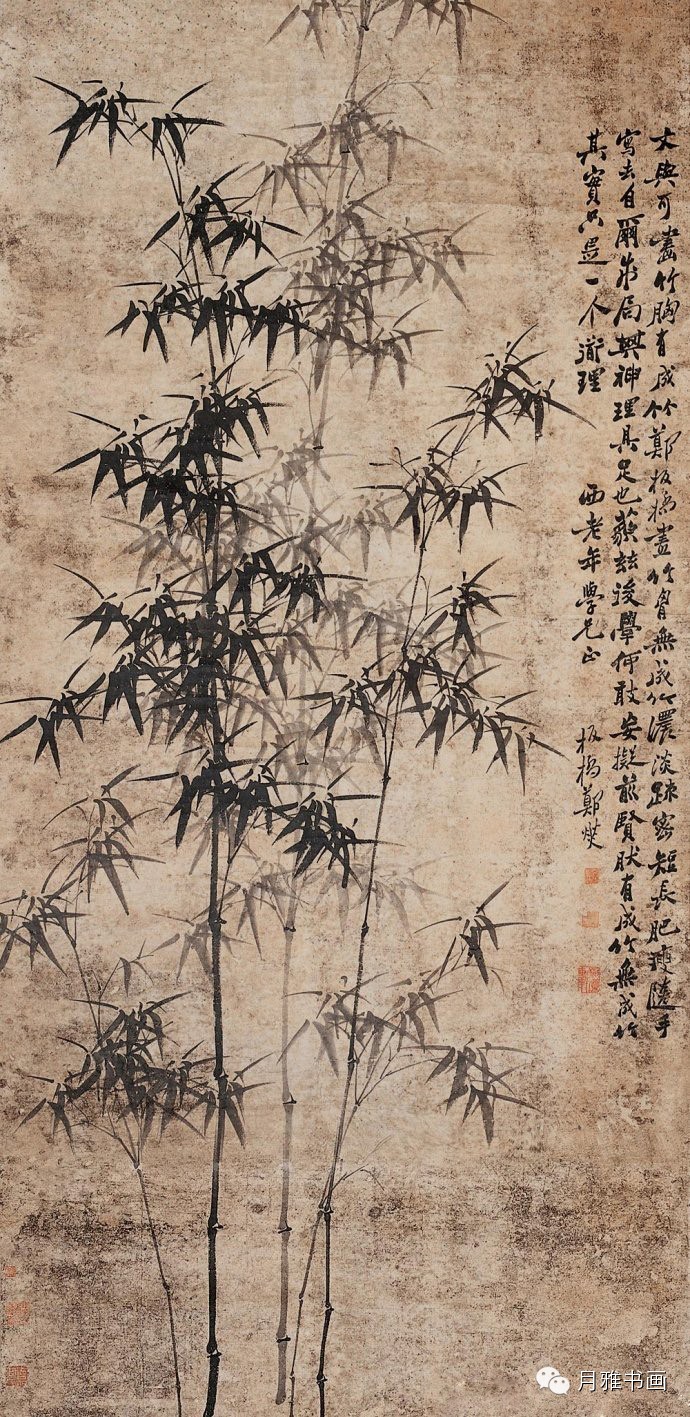 文與可畫竹胸有成竹鄭板橋畫竹胷無成竹濃淡疎密短長肥瘦隨手
寫去自爾成局其神理具足也藐茲後學何敢妄擬前賢肰有成竹無成竹
其實只是一个衜理
西老年學兄正
板橋鄭燮
月雅书画